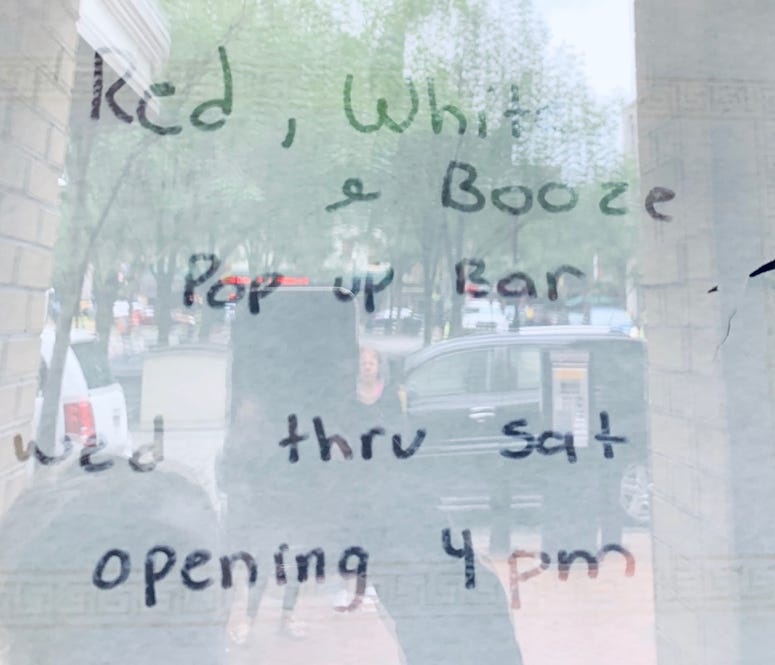 Red, White
& Booze
Pop up Bar
wed thru sat
opening 4pm